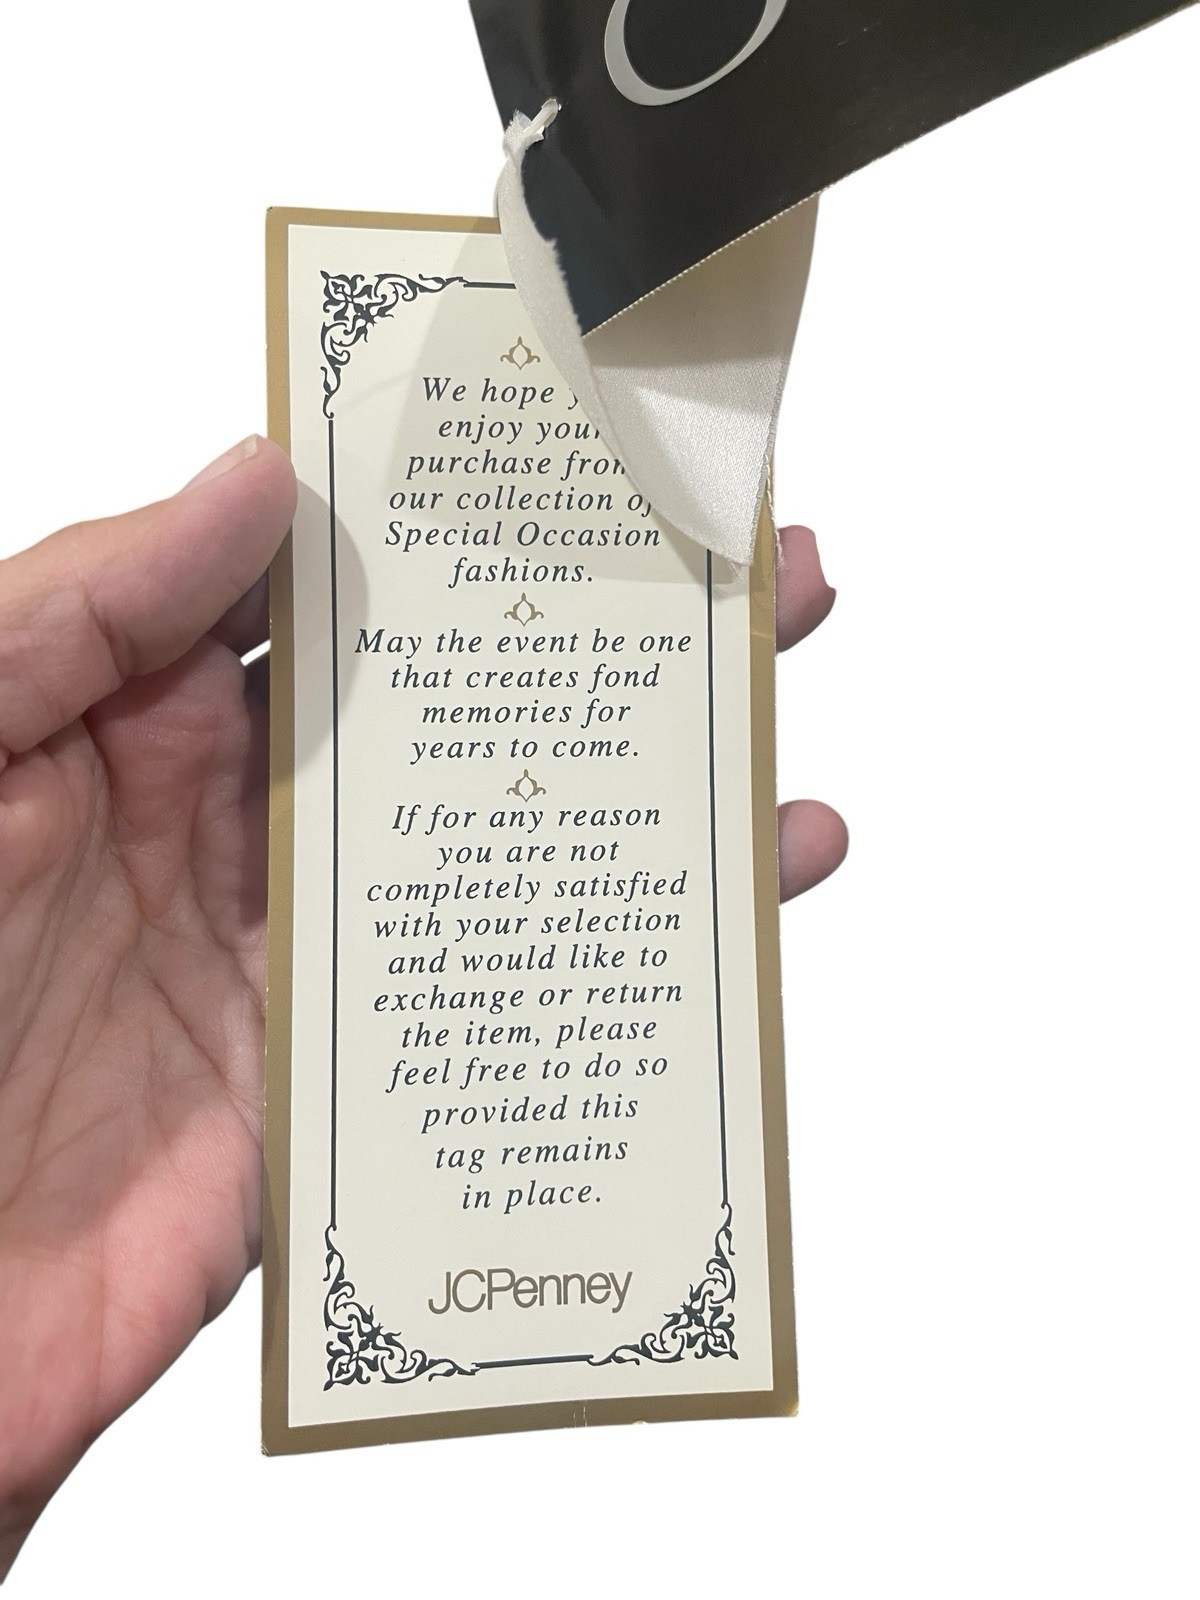 We hope
enjoy your
purchase from
our collection of
Special Occasion
fashions.
May the event be one
that creates fond
memories for
years to come.
If for any reason
you are not
completely satisfied
with your selection
and would like to
exchange or return
the item, please
feel free to do so
provided this
tag remains
in place.
JCPenney